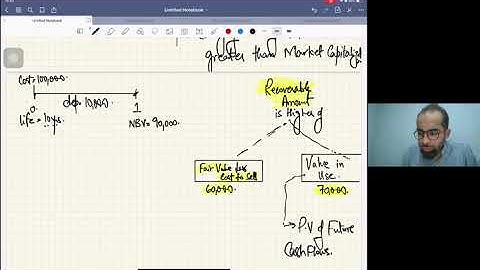 Untitled Notebook
greater than Market Capitaliz
Cost=100,000.
0
dep=10,000.
1
life=10yrs.
NBV=90,000.
Recoverable
Amount
is Higher of
Fair Value less
Cost to Sell
60,000.
Value in
Use.
70,000.
P.V of Future
Cash Flows.